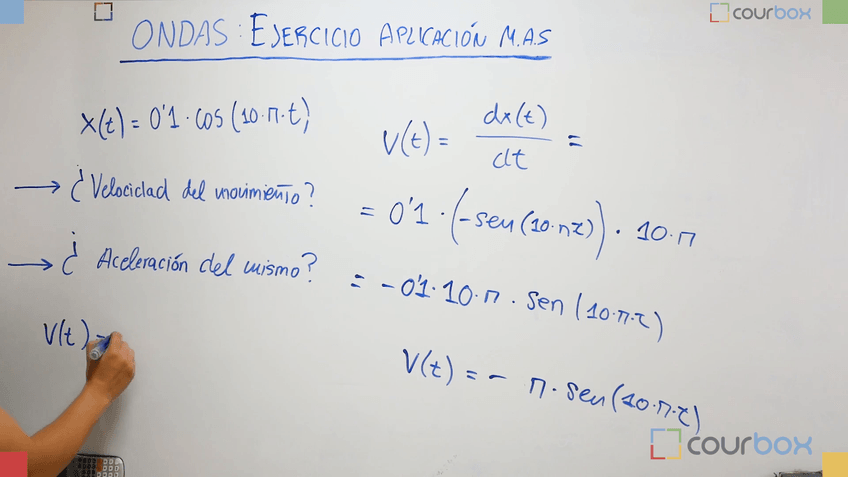 courbox
ONDAS: EJERCICIO APLICACIÓN M.A.S
X(t) = 0'1 · cos (10·π·t)
→ ¿Velocidad del movimiento?
→ ¿ Aceleración del mismo?
V(t) =
V(t) = dx(t)/dt =
= 0'1 · (-sen (10·πt)) · 10·π
= - 0'1·10·π · sen (10·π·t)
V(t) = - π · sen (10·π·t)
courbox